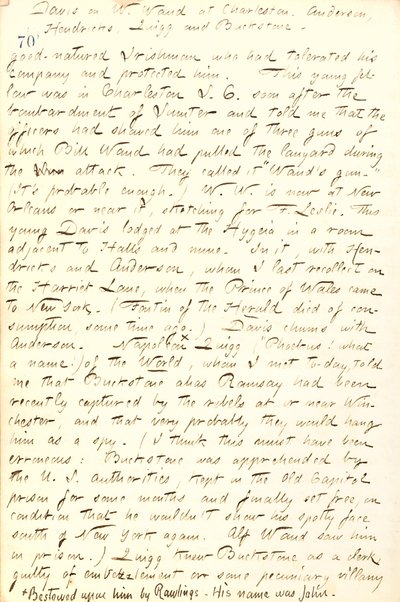 Davis on W. Waud at Charleston. Anderson,
Hendricks, Quigg and Buckstone.
70
good-natured Irishman who had tolerated his
company and protected him. This young fel-
low was in Charleston S. C. soon after the
bombardment of Sumter and told me that the
officers had showed him one of three guns of
which Bill Waud had pulled the lanyard during
the attack. They called it "Waud's gun."
(It's probable enough.) W. W. is now at New
Orleans or near it, sketching for F. Leslie. This
young Davis lodged at the Hygeia in a room
adjacent to Halls and mine. In it, with Hen-
dricks and Anderson, whom I last recollect on
the Harriet Lane, when the Prince of Wales came
to New York. (Fontin of the Herald died of con-
sumption, some time ago.) Davis chums with
Anderson. Napoleon x Quigg (Phoebus! what
a name!) of the World, whom I met to-day, told
me that Buckstone alias Ramsay had been
recently captured by the rebels at or near Win-
chester, and that very probably they would hang
him as a spy. (I think this must have been
erroneous: Buckstone was apprehended by
the U. S. authorities, kept in the Old Capitol
prison for some months and finally set free, on
condition that he wouldn't show his spotty face
south of New York again. Alf Waud saw him
in prison.) Quigg knew Buckstone as a clerk,
guilty of embezzlement or some pecuniary villany
x Bestowed upon him by Rawlings. His name was John.